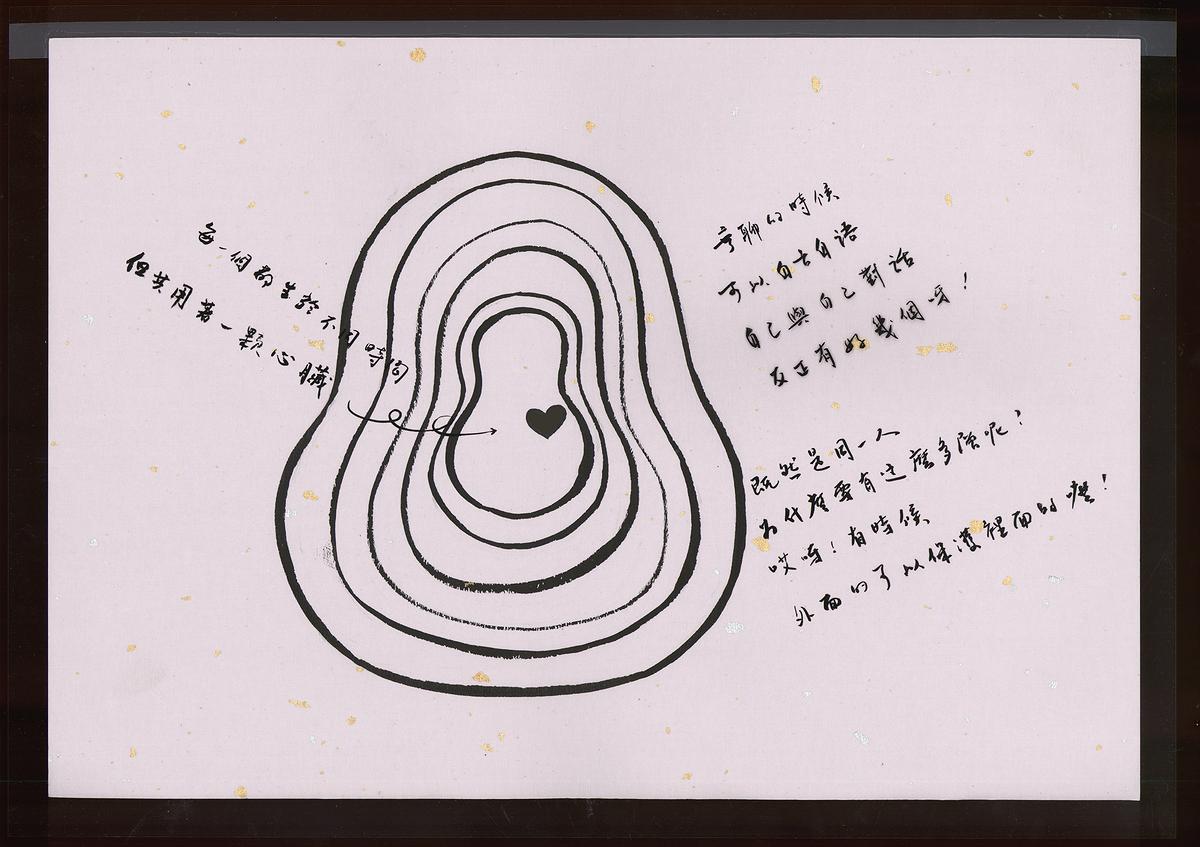 每一個都生於不同時間
但共用著一顆心臟
無聊的時候
可以自言自語
自己與自己對話
反正有好幾個呀!
既然是同一人
為什麼要有這麼多險呢?
哎呀!有時候
外面的可以保護裡面的嘿!